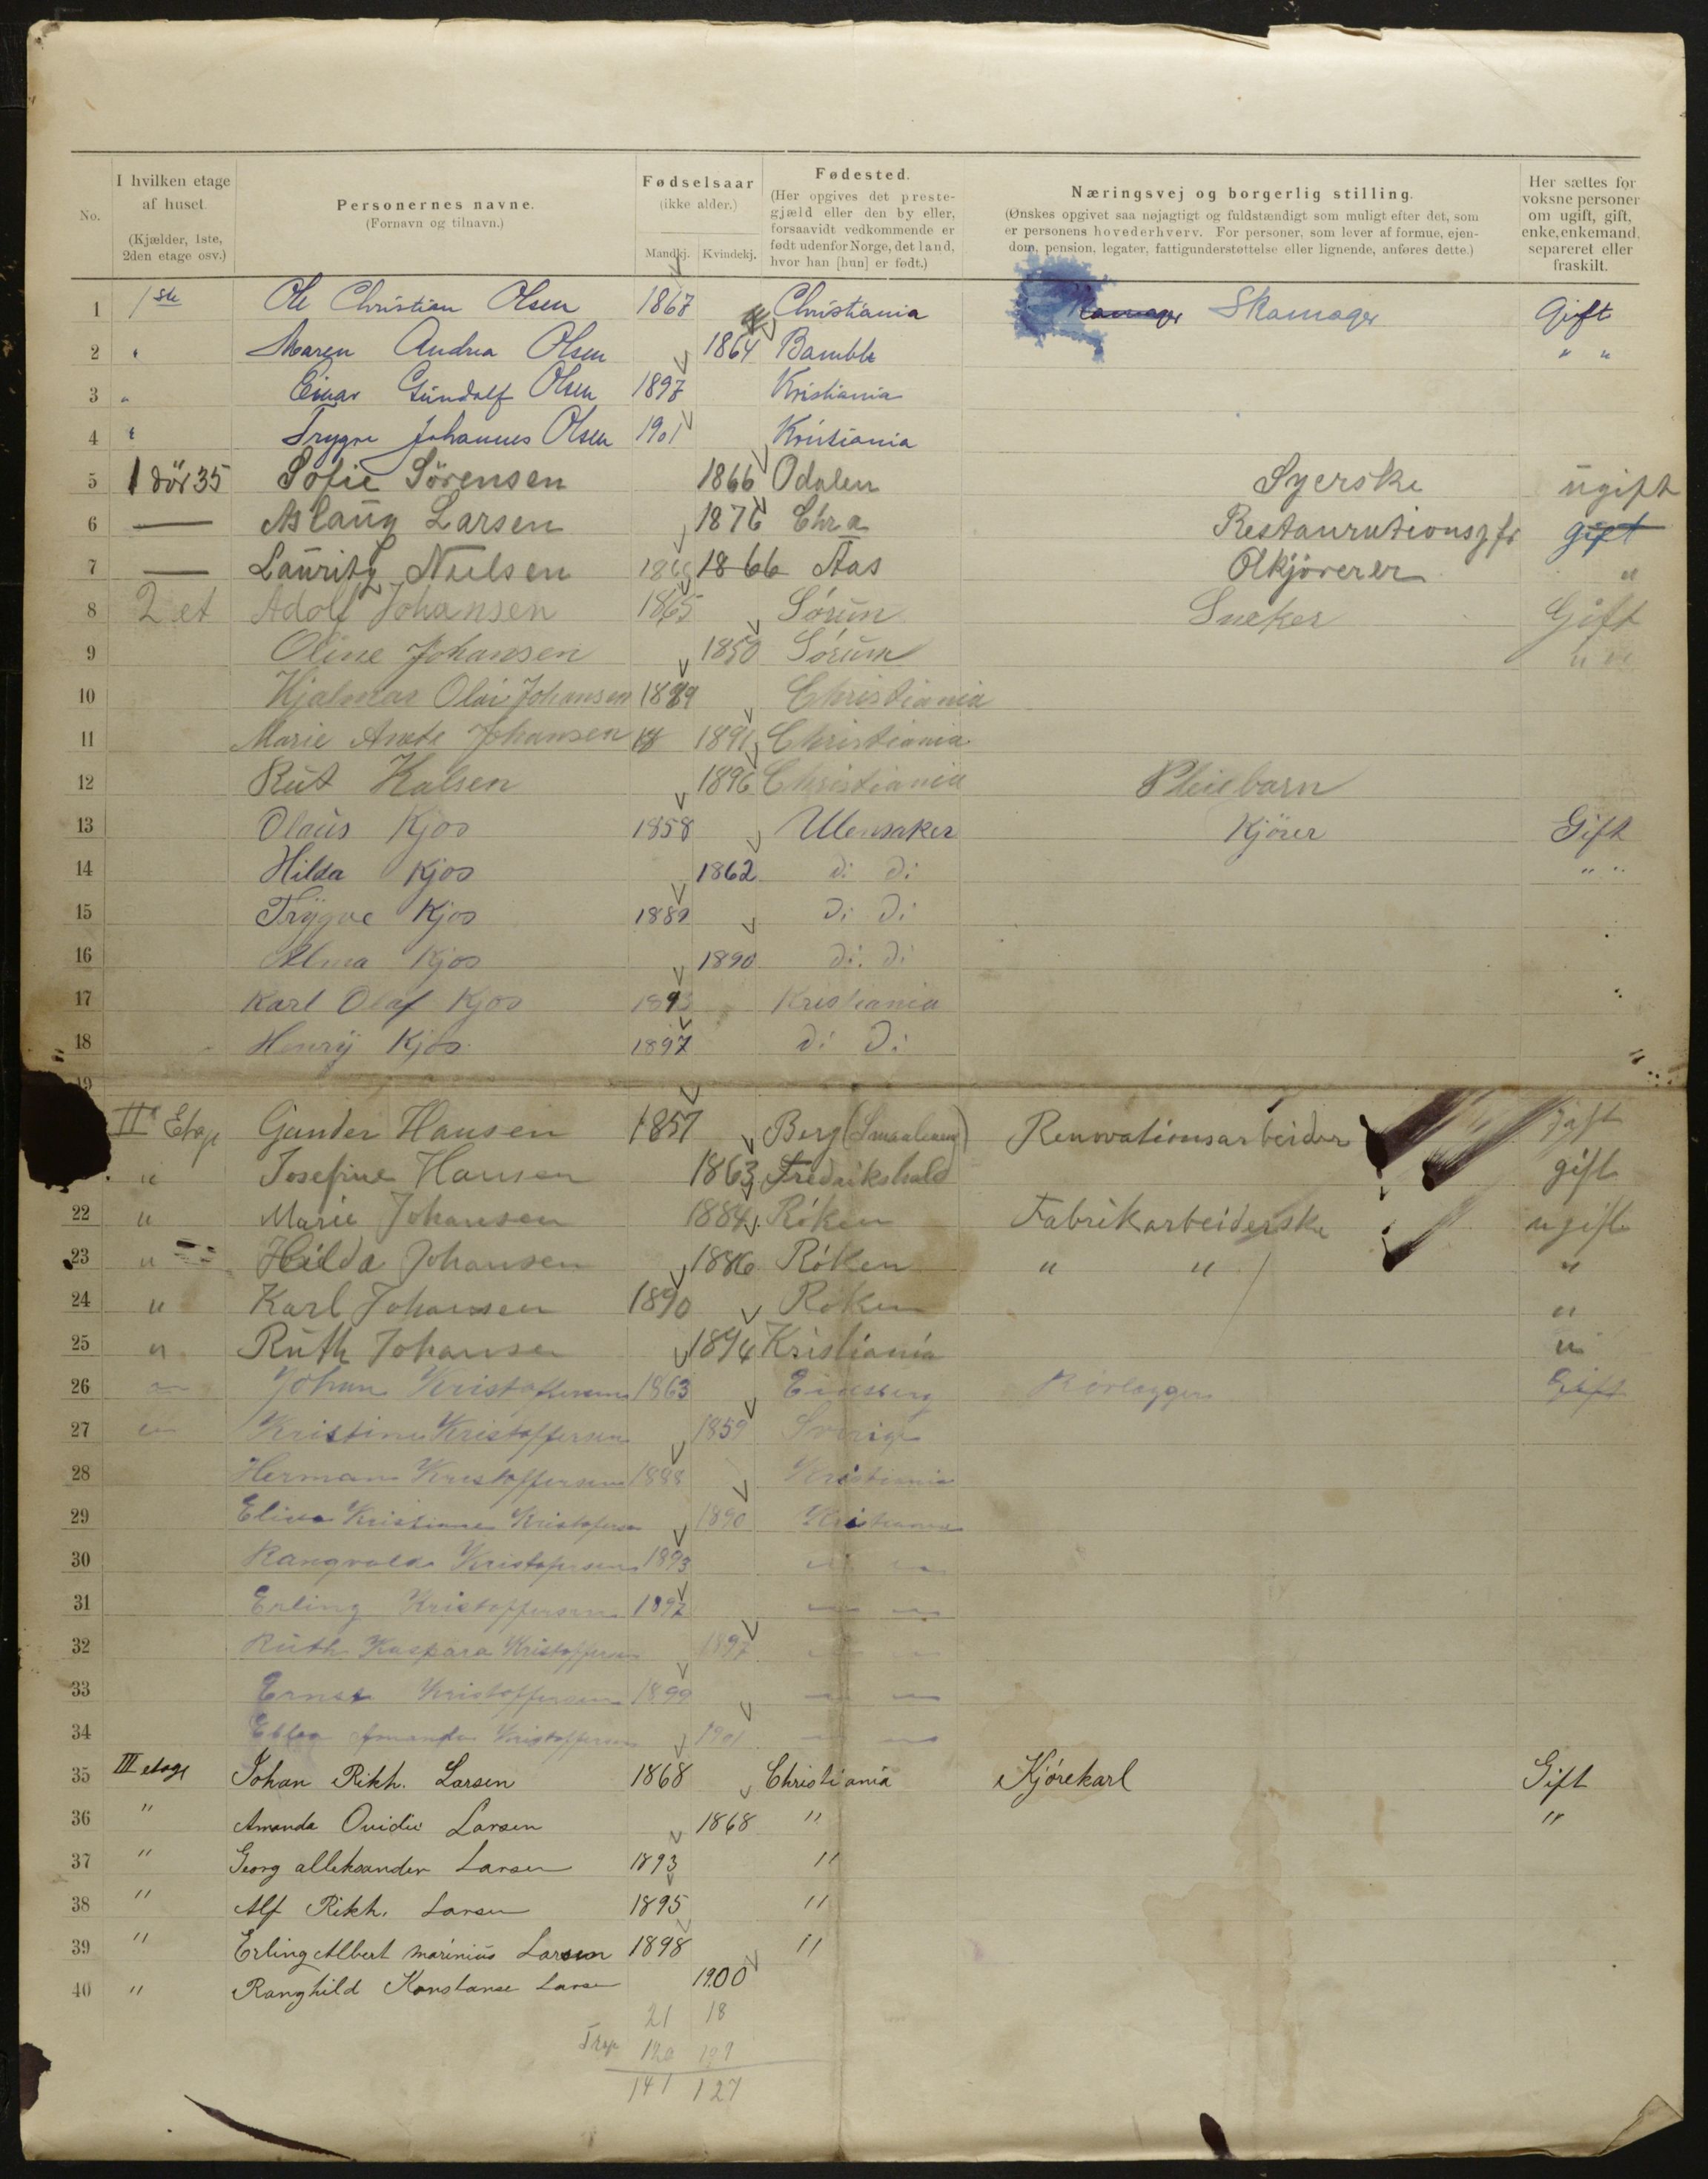 No. | I hvilken etage af huset. (Kjælder, 1ste, 2den etage osv.) | Personernes navne. (Fornavn og tilnavn.) | Fødselsaar (ikke alder.) Mandkj. Kvindekj. | Fødested. (Her opgives det prestegjæld eller den by eller, forsaavidt vedkommende er født udenfor Norge, det land, hvor han [hun] er født.) | Næringsvej og borgerlig stilling. (Ønskes opgivet saa nøjagtigt og fuldstændigt som muligt efter det, som er personens hovederhverv. For personer, som lever af formue, ejendom, pension, legater, fattigunderstøttelse eller lignende, anføres dette.) | Her sættes for voksne personer om ugift, gift, enke, enkemand, separeret eller fraskilt.
1 1ste Ole Christian Olsen 1867 Christiania Skomager Gift
2 " Maren Andrea Olsen 1864 Bamble " "
3 " Einar Gundolf Olsen 1897 Kristiania
4 " Trygve Johannes Olsen 1901 Kristiania
5 1 dör 35 Sofie Sörensen 1866 Odalen Syerske ugift
6 — Aslaug Larsen 1876 Chra gift
7 — Lauritz Nielsen 1866 Aas Ølkjörerer "
8 2 et Adolf Johansen 1865 Sórum Sneker Gift
9 Oline Johansen 1850 Sórum " "
10 Hjalmar Olai Johansen 1889 Christiania
11 Marie Anete Johansen 18 1891 Christiania
12 Rut Kalsen 1896 Christiania Pleiebarn
13 Olaus Kjos 1858 Ulensaker Kjörer Gift
14 Hilda Kjos 1862 Di Di " "
15 Trygve Kjos 1889 Di Di
16 Alma Kjos 1890 Di. Di
17 Karl Olaf Kjos 1893 Kristiania
18 Henry Kjos 1897 Di Di
19
II Etage Gunder Hansen 1857 Berg (Smaalenene) Renovationsarbeider gift
" Josefine Hansen 1863 Fredrikshald gift
22 " Marie Johansen 1884 Róken Fabrikarbeiderske ugift
23 " Hilda Johansen 1886 Róken " " "
24 " Karl Johansen 1890 Róken "
25 " Ruth Johansen 1894 Kristiania "
26 " Johan Kristoffersen 1863 Eidsberg Rorlægger Gift
27 " Kristine Kristoffersen 1859 Sverige
28 Herman Kristoffersen 1888 Kristiania
29 Elisa Kristiane Kristofersen 1890 Kristiania
30 Rangvald Kristofersen 1893 " "
31 Erling Kristoffersen 1897 " "
32 Ruth Kaspara Kristoffersen 1897 " "
33 Ernst Kristoffersen 1899 " "
34 Amanda Kristoffersen 1901 " "
35 III etage Johan Rikh. Larsen 1868 Christiania Kjórekarl Gift
36 " Amanda Ovidie Larsen 1868 " "
37 " Georg alleksander Larsen 1893 "
38 " Alf Rikh. Larsen 1895 "
39 " Erling Albert Marinius Larsen 1898 "
40 " Ranghild Konstanse Larsen 1900
21 18
120 109
141 127